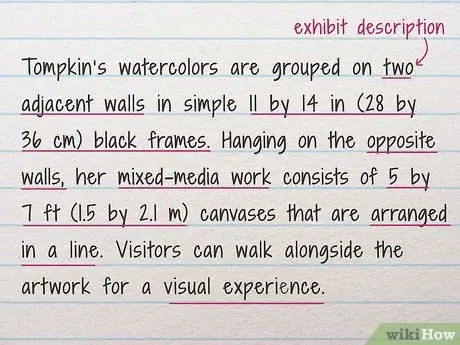 exhibit description
Tompkin's watercolors are grouped on two
adjacent walls in simple 11 by 14 in (28 by
36 cm) black frames. Hanging on the opposite
walls, her mixed-media work consists of 5 by
7 ft (1.5 by 2.1 m) canvases that are arranged
in a line. Visitors can walk alongside the
artwork for a visual experience.
wikiHow